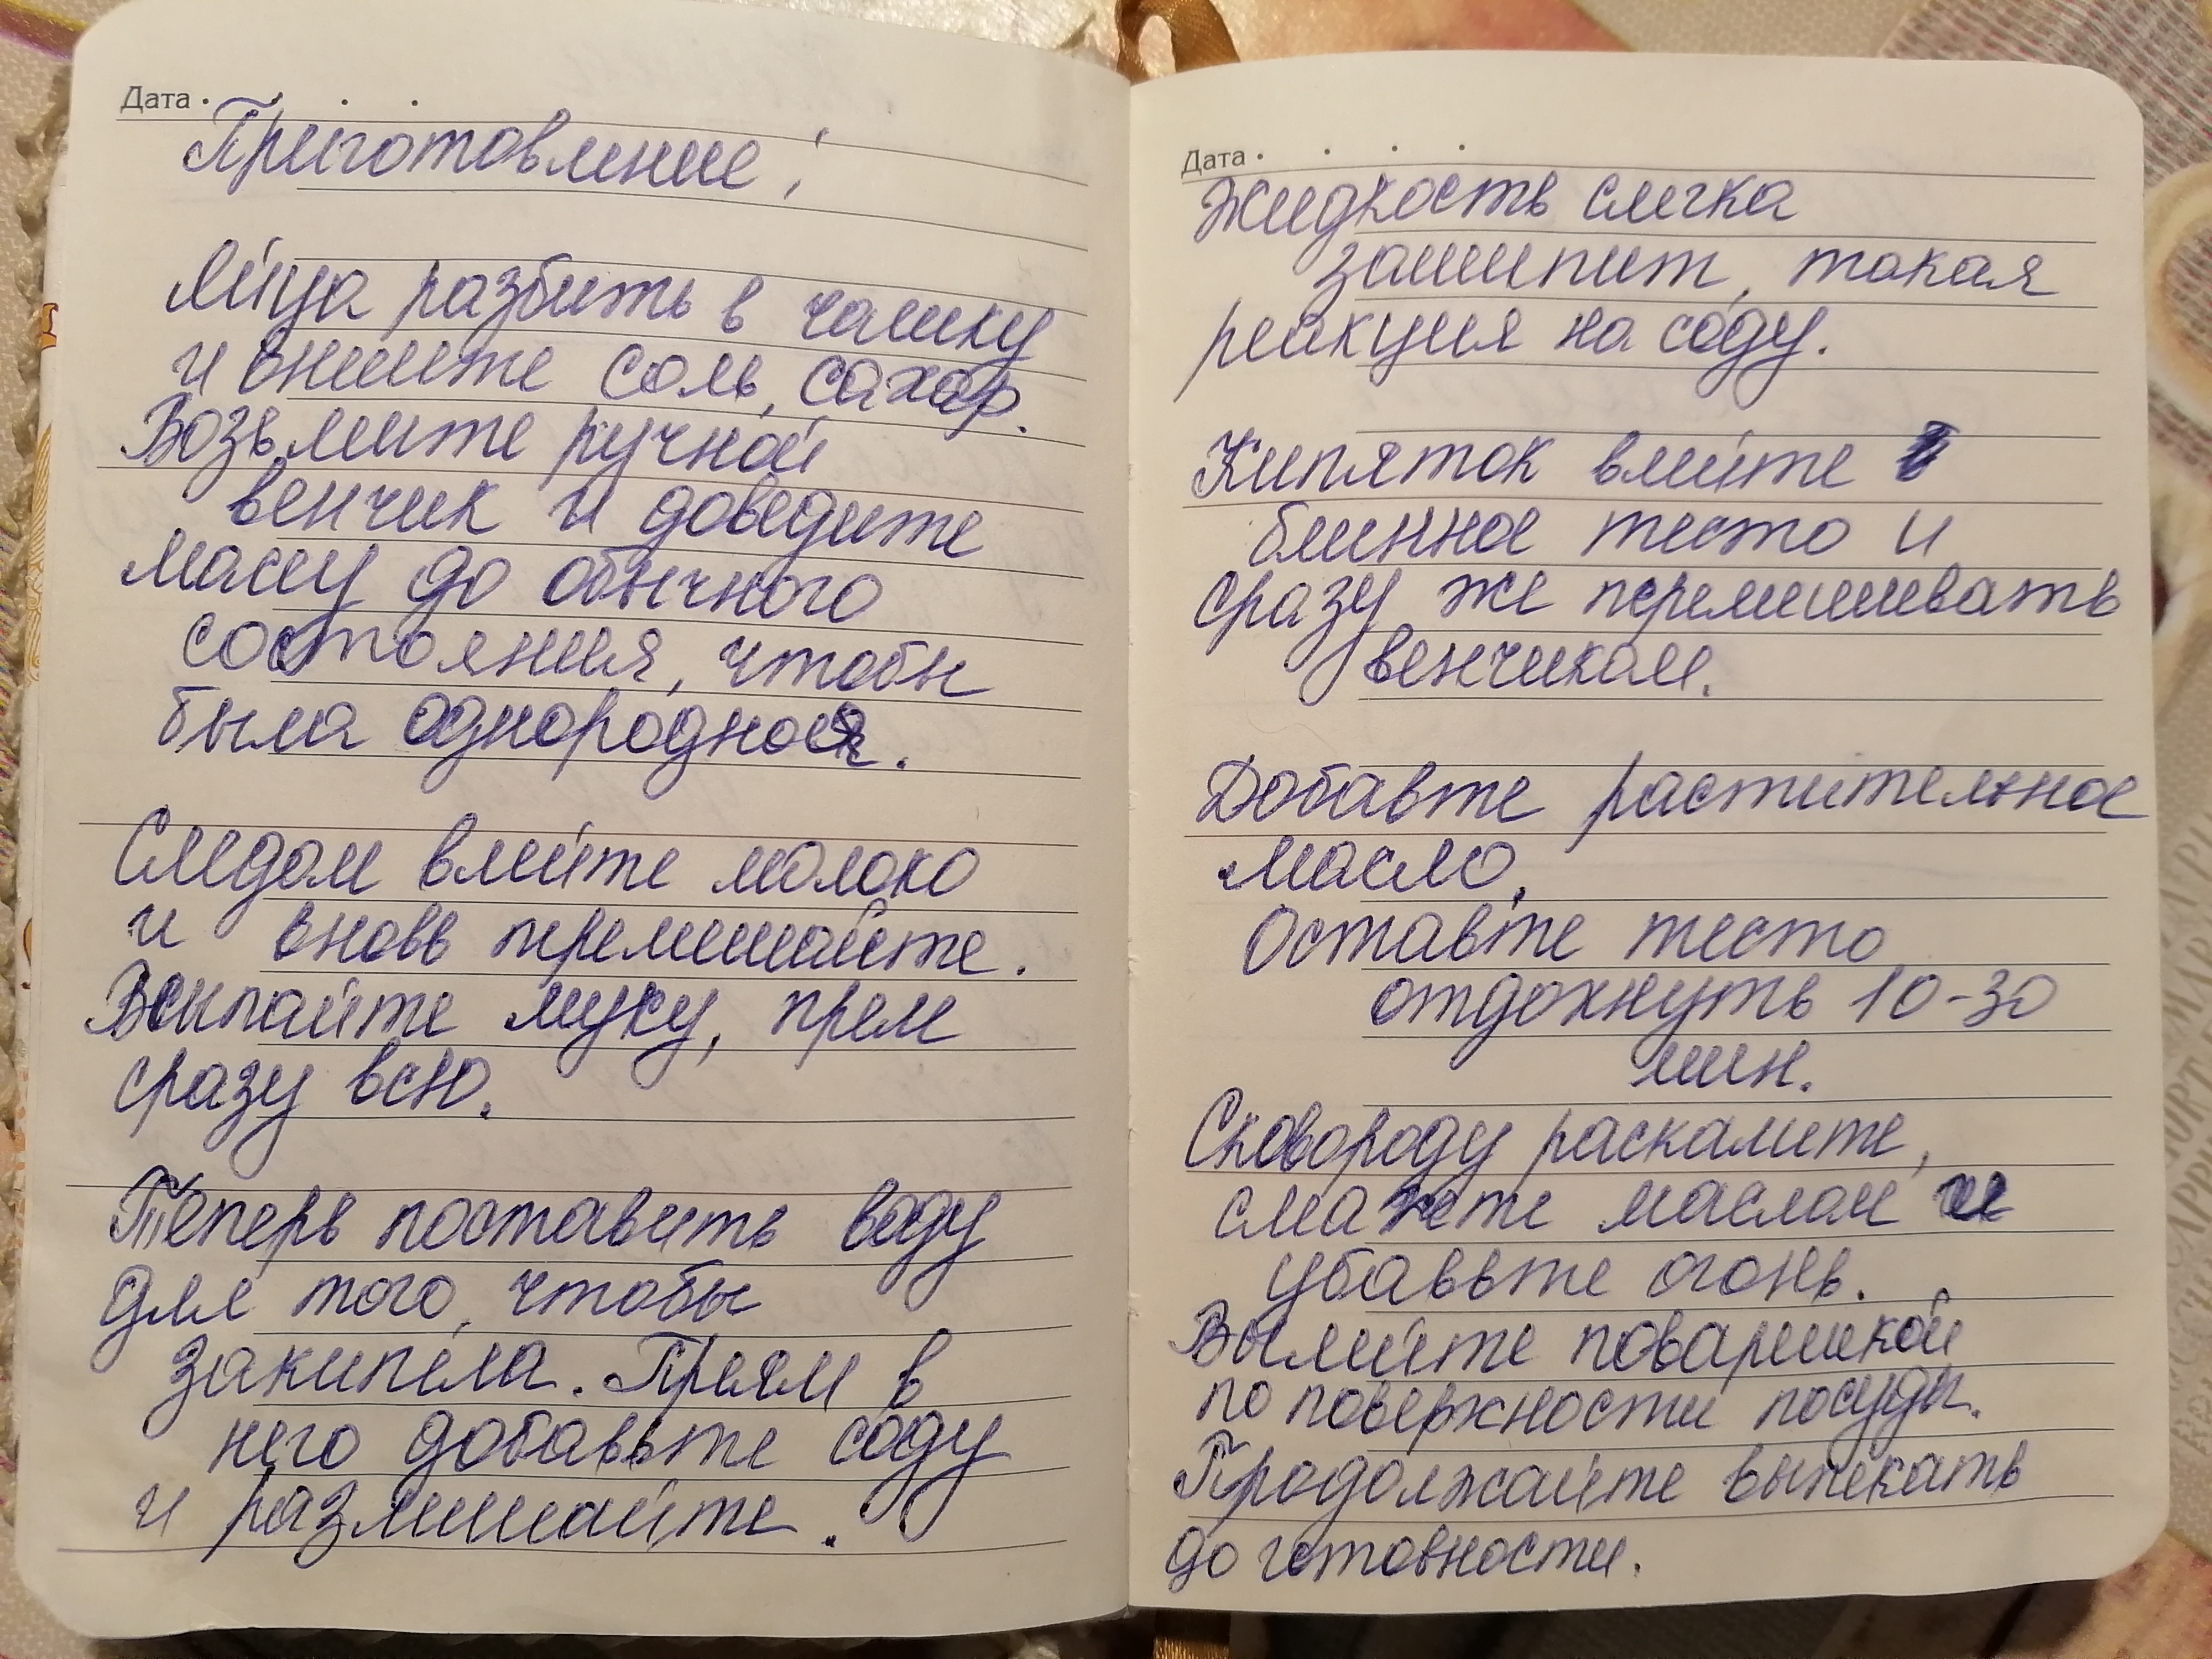 Дата
Приготовление:
Яйца разбить в чашку
и внесите соль, сахар.
Возьмите ручной
венчик и доведите
массу до обычного
состояния, чтобы
была однородная.
Следом влейте молоко
и вновь перемешайте.
Всыпайте муку, прям
сразу всю.
Теперь поставить воду
для того, чтобы
закипела. Прям в
него добавьте соду
и размешайте.
Дата
Жидкость слегка
зашипит, такая
реакция на соду.
Кипяток влейте в
блинное тесто и
сразу же перемешивать
венчиком.
Добавте растительное
масло.
Оставте тесто
отдохнуть 10-30
мин.
Сковороду раскалите,
смажте маслом и
убаввте огонь.
Вылейте поварешкой
по поверхности посуды.
Продолжайте выпекать
до готовности.